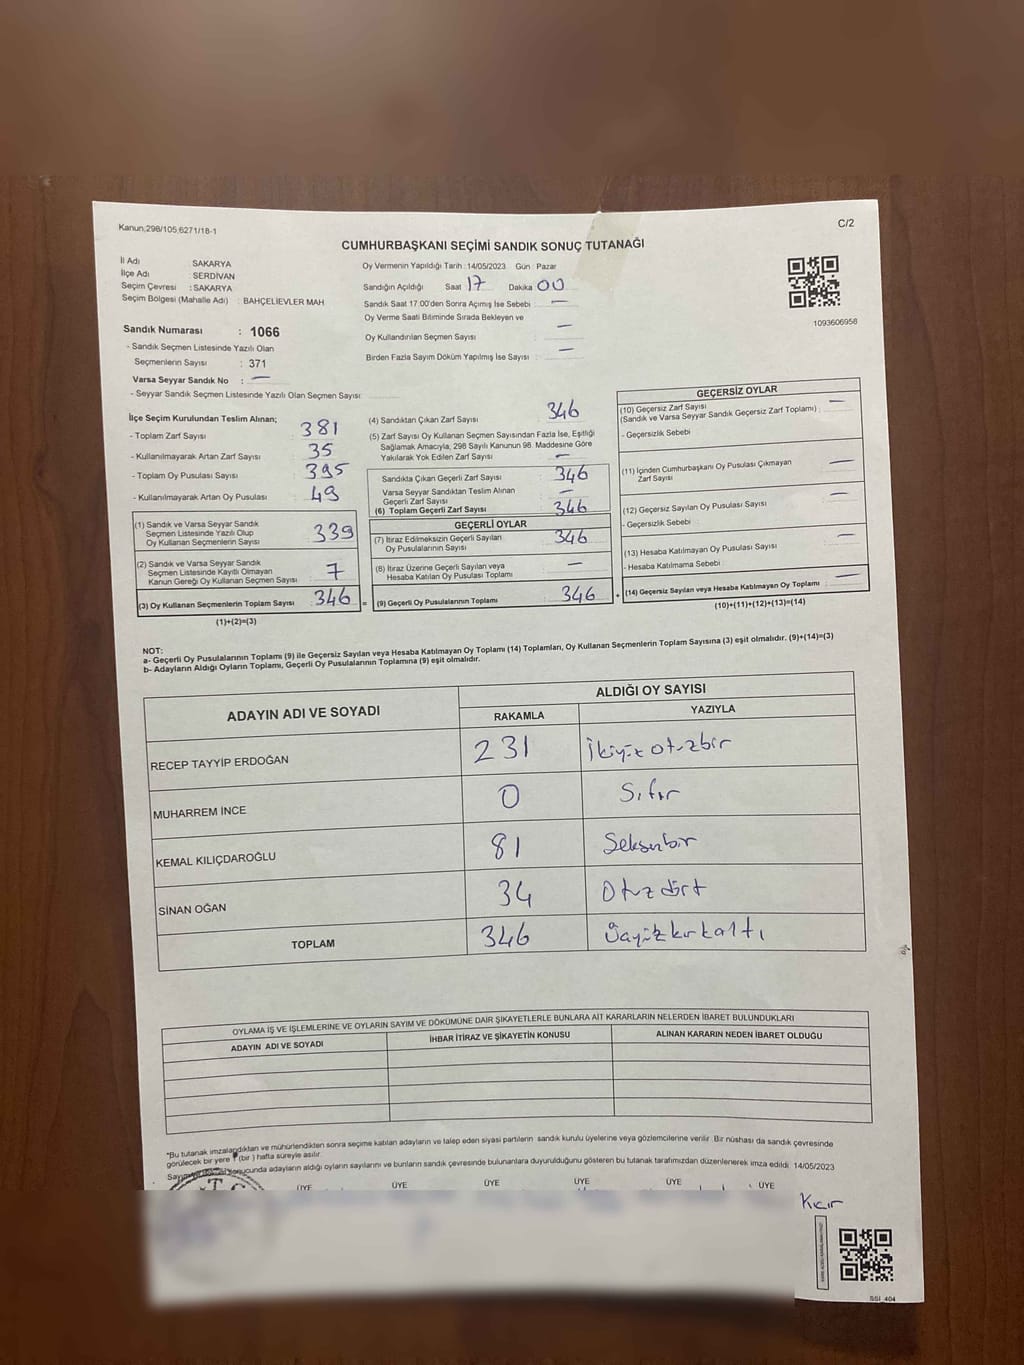 Kanun,298/105,6271/18-1
C/2
CUMHURBAŞKANI SEÇİMİ SANDIK SONUÇ TUTANAĞI
İl Adı SAKARYA
İlçe Adı SERDİVAN
Seçim Çevresi : SAKARYA
Seçim Bölgesi (Mahalle Adı) : BAHÇELİEVLER MAH
Oy Vermenin Yapıldığı Tarih : 14/05/2023 Gün : Pazar
Sandığın Açıldığı Saat 17 Dakika 00
Sandık Saat 17.00'den Sonra Açımış İse Sebebi : —
Oy Verme Saati Bitiminde Sırada Bekleyen ve
Oy Kullandırılan Seçmen Sayısı —
Birden Fazla Sayım Döküm Yapılmış İse Sayısı : —
1093606958
Sandık Numarası : 1066
- Sandık Seçmen Listesinde Yazılı Olan
Seçmenlerin Sayısı : 371
Varsa Seyyar Sandık No : —
- Seyyar Sandık Seçmen Listesinde Yazılı Olan Seçmen Sayısı
İlçe Seçim Kurulundan Teslim Alınan;
- Toplam Zarf Sayısı 381
- Kullanılmayarak Artan Zarf Sayısı 35
- Toplam Oy Pusulası Sayısı 395
- Kullanılmayarak Artan Oy Pusulası 49
(1) Sandık ve Varsa Seyyar Sandık
Seçmen Listesinde Yazılı Olup
Oy Kullanan Seçmenlerin Sayısı 339
(2) Sandık ve Varsa Seyyar Sandık
Seçmen Listesinde Kayıtlı Olmayan
Kanun Gereği Oy Kullanan Seçmen Sayısı 7
(3) Oy Kullanan Seçmenlerin Toplam Sayısı 346 =
(1)+(2)=(3)
(4) Sandıktan Çıkan Zarf Sayısı 346
(5) Zarf Sayısı Oy Kullanan Seçmen Sayısından Fazla İse, Eşitliği
Sağlamak Amacıyla, 298 Sayılı Kanunun 98. Maddesine Göre
Yakılarak Yok Edilen Zarf Sayısı —
Sandıkta Çıkan Geçerli Zarf Sayısı 346
Varsa Seyyar Sandıktan Teslim Alınan
Geçerli Zarf Sayısı —
(6) Toplam Geçerli Zarf Sayısı 346
GEÇERLİ OYLAR
(7) İtiraz Edilmeksizin Geçerli Sayılan
Oy Pusulalarının Sayısı 346
(8) İtiraz Üzerine Geçerli Sayılan veya
Hesaba Katılan Oy Pusulası Toplamı —
(9) Geçerli Oy Pusulalarının Toplamı 346 +
GEÇERSİZ OYLAR
(10) Geçersiz Zarf Sayısı —
(Sandık ve Varsa Seyyar Sandık Geçersiz Zarf Toplamı) :
- Geçersizlik Sebebi
(11) İçinden Cumhurbaşkanı Oy Pusulası Çıkmayan
Zarf Sayısı —
(12) Geçersiz Sayılan Oy Pusulası Sayısı —
- Geçersizlik Sebebi
(13) Hesaba Katılmayan Oy Pusulası Sayısı —
- Hesaba Katılmama Sebebi
(14) Geçersiz Sayılan veya Hesaba Katılmayan Oy Toplamı —
(10)+(11)+(12)+(13)=(14)
NOT:
a- Geçerli Oy Pusulalarının Toplamı (9) ile Geçersiz Sayılan veya Hesaba Katılmayan Oy Toplamı (14) Toplamları, Oy Kullanan Seçmenlerin Toplam Sayısına (3) eşit olmalıdır. (9)+(14)=(3)
b- Adayların Aldığı Oyların Toplamı, Geçerli Oy Pusulalarının Toplamına (9) eşit olmalıdır.
ADAYIN ADI VE SOYADI ALDIĞI OY SAYISI
RAKAMLA YAZIYLA
RECEP TAYYİP ERDOĞAN 231 İkiyüz otuzbir
MUHARREM İNCE 0 Sıfır
KEMAL KILIÇDAROĞLU 81 Seksenbir
SİNAN OĞAN 34 Otuz dört
TOPLAM 346 Üçyüzkırkaltı
OYLAMA İŞ VE İŞLEMLERİNE VE OYLARIN SAYIM VE DÖKÜMÜNE DAİR ŞİKAYETLERLE BUNLARA AİT KARARLARIN NELERDEN İBARET BULUNDUKLARI
ADAYIN ADI VE SOYADI İHBAR İTİRAZ VE ŞİKAYETİN KONUSU ALINAN KARARIN NEDEN İBARET OLDUĞU
*Bu tutanak imzalandıktan ve mühürlendikten sonra seçime katılan adayların ve talep eden siyasi partilerin sandık kurulu üyelerine veya gözlemcilerine verilir. Bir nüshası da sandık çevresinde
görülecek bir yere (bir) hafta süreyle asılır.
sonucunda adayların aldığı oyların sayılarını ve bunların sandık çevresinde bulunanlara duyurulduğunu gösteren bu tutanak tarafımızdan düzenlenerek imza edildi. 14/05/2023
T.C
ÜYE ÜYE ÜYE ÜYE ÜYE ÜYE
Kıcır
SSI 404